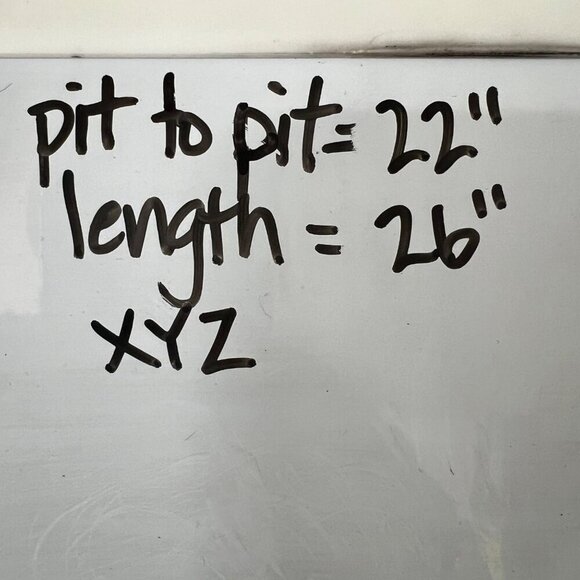 pit to pit = 22"
length = 26"
XYZ